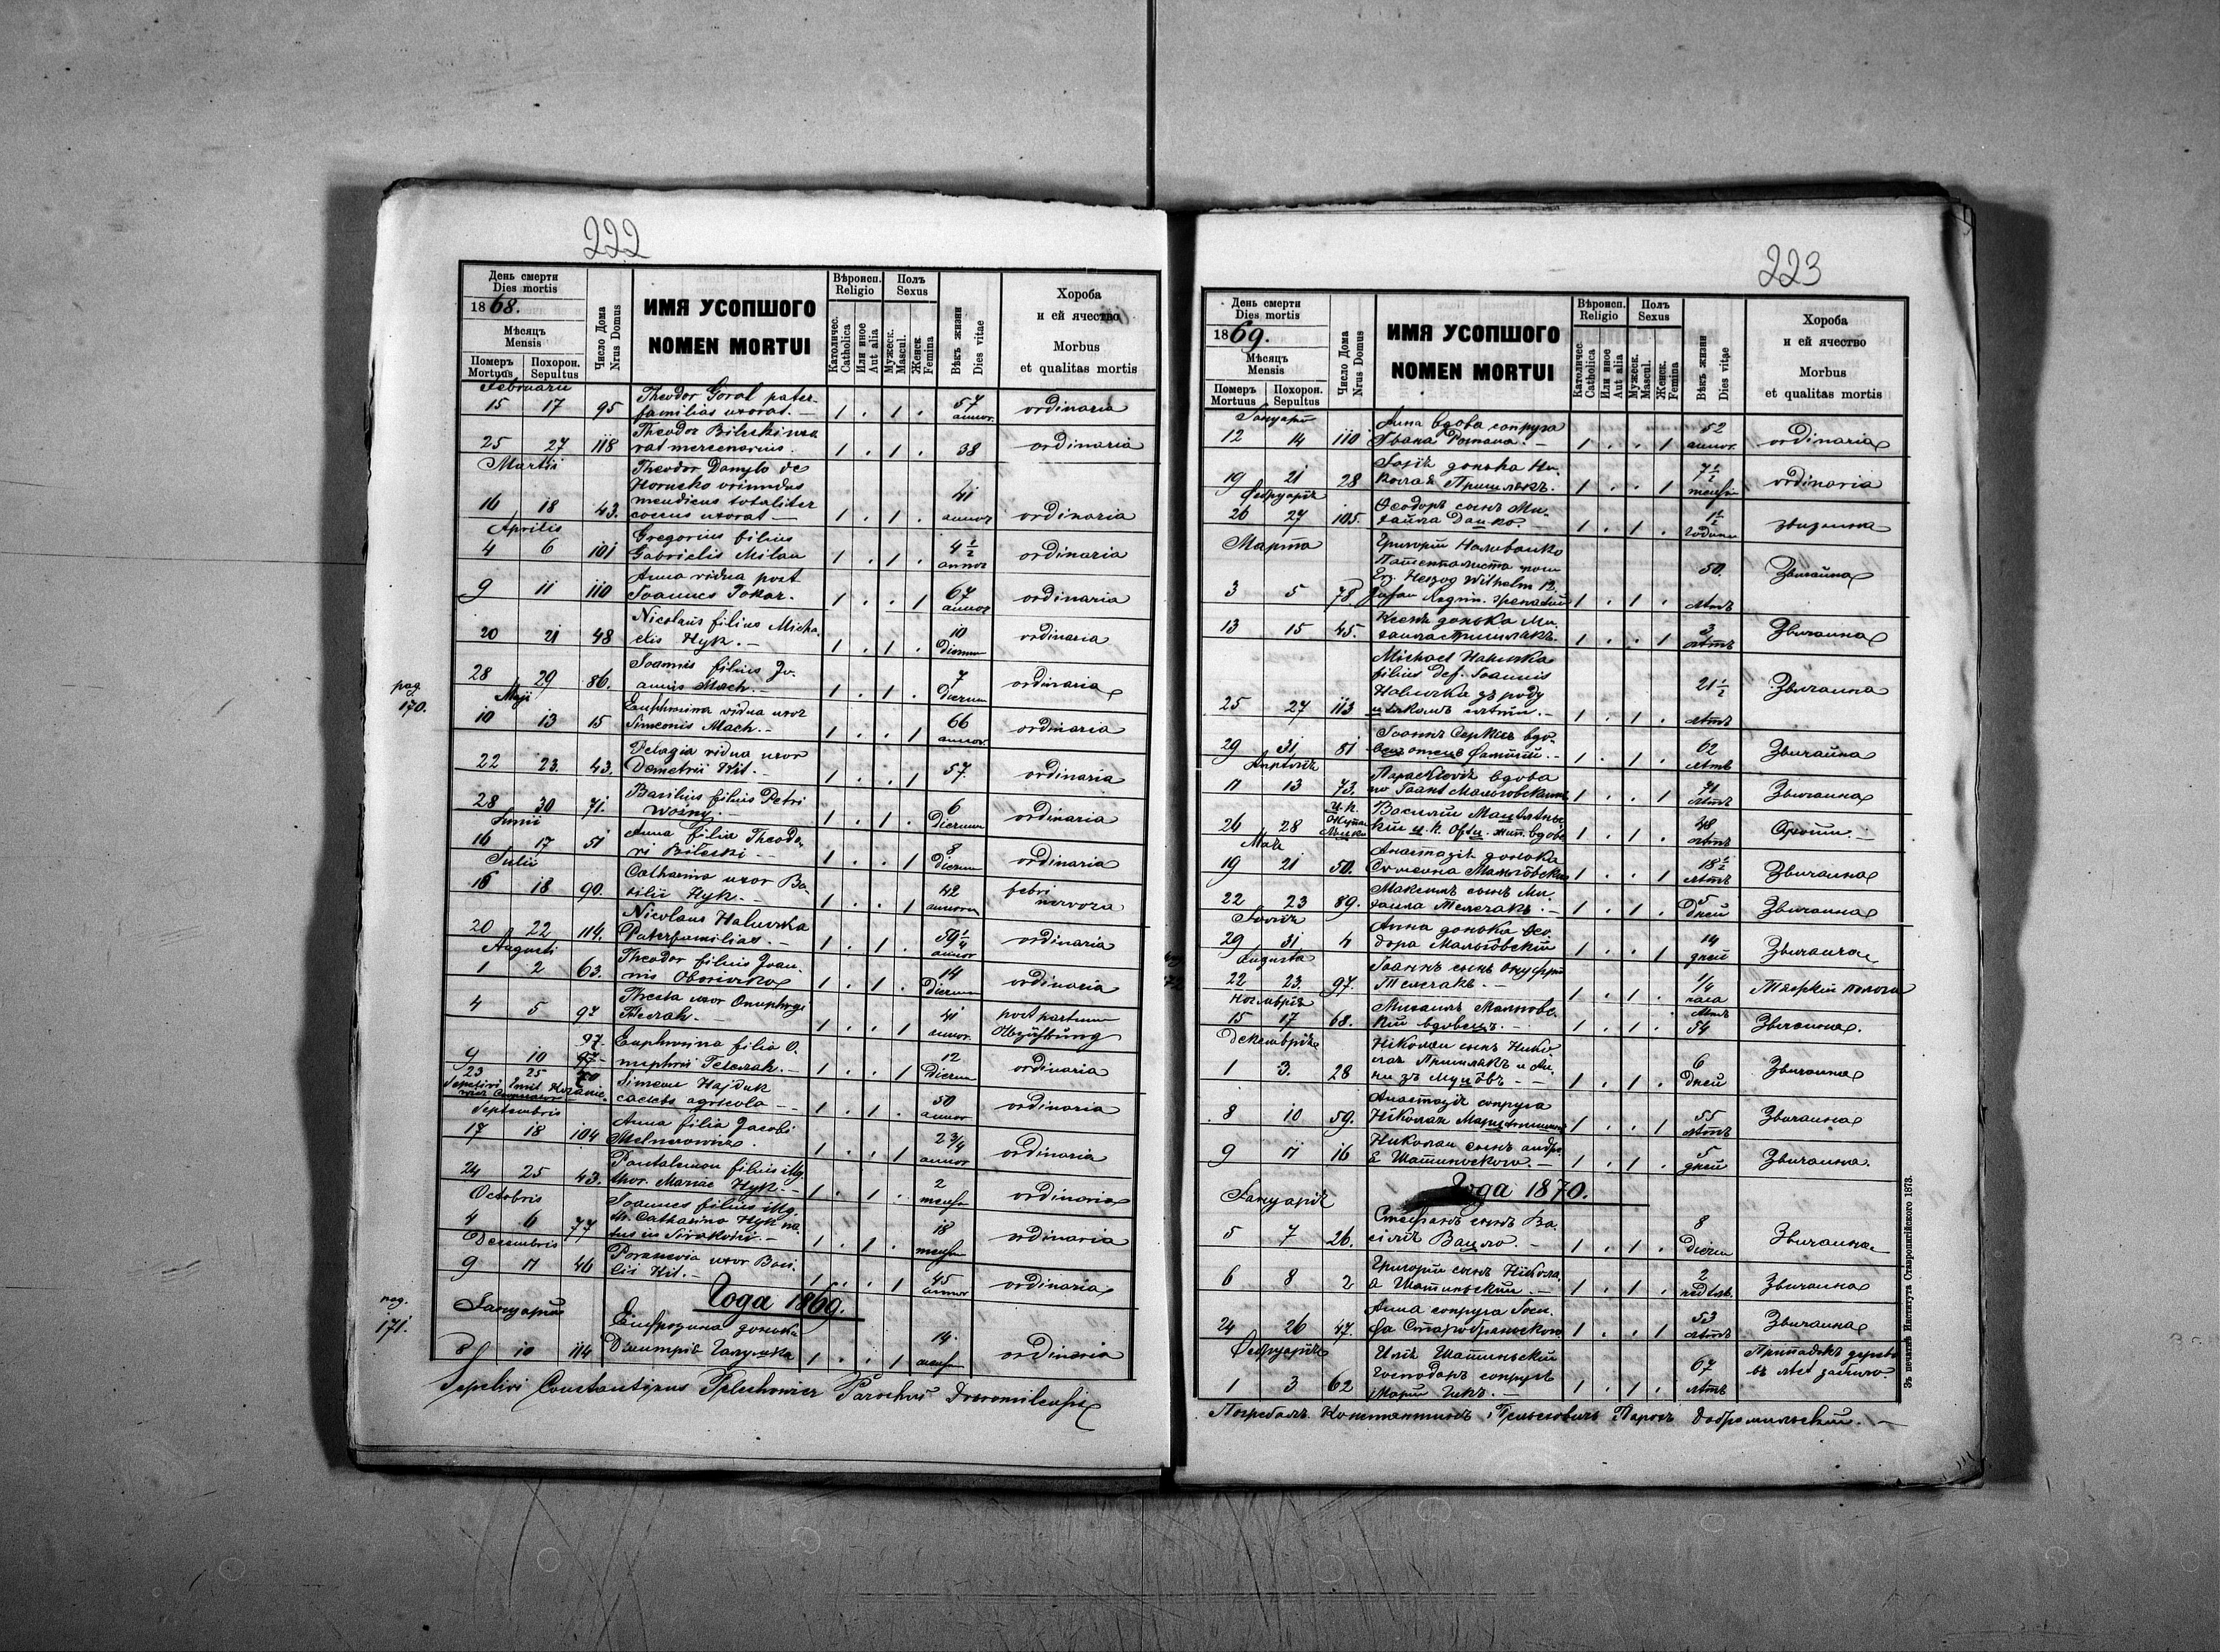 222
День смерти
Dies mortis
1868.
Мѣсяцъ
Mensis
Померъ Похорон.
Mortuus Sepultus
Число Дома
Nrus Domus
ИМЯ УСОПШОГО
NOMEN MORTUI
Вѣроисп.
Religio
Католичес.
Catholica
Или иное
Aut alia
Полъ
Sexus
Мужеск.
Mascul.
Женск.
Femina
Вѣкъ жизни
Dies vitae
Хороба
и ей ячество
Morbus
et qualitas mortis
Februarii
Theodor Goral pater-
15 17 95 familias uxorat. — 1 . 1 . 57 annor. ordinaria
Theodor Bilecki uxo
25 27 118 rat mercenarius. 1 . 1 . 38 ordinaria
Martii
Theodor Danylo de
Horncko oriundus
mendicus totaliter
16 18 43. coecus uxorat — 1 . 1 . 41 annor ordinaria
Aprilis
Gregorius filius
4 6 101 Gabrielis Milan 1 . 1 . 4 1/2 annor ordinaria
Anna vidua post
9 11 110 Joannes Tokar. 1 . . 1 67 annor ordinaria
Nicolaus filius Micha-
20 21 48 elis Hyk. — 1 . 1 . 10 Dierum ordinaria
Joannis filius Jo-
28 29 86. annis Mach. — 1 . 1 . 7 Dierum ordinaria
pag.
170.
Maji
Euphrosina vidua uxor
10 13 15 Simeonis Mach. — 1 . . 1 66 annor. ordinaria
Pelagia vidua uxor
22 23. 43. Demetrii Kit. — 1 . . 1 57. ordinaria
Basilius filius Petri
28 30 71. Woźny. — 1 . 1 . 6 Dierum ordinaria
Junii
Anna filia Theodo-
16 17 51 ri Bilecki — 1 . . 1 8 Dierum ordinaria
Julii
Catharina uxor Ba-
16 18 90. silii Hyk. — 1 . . 1 42 annorum febri nervoza
Nicolaus Haluszka
20 22 114. Paterfamilias. — 1 . 1 . 59 1/4 annor ordinaria
Augusti
Theodor filius Joan-
1 2 63. nis 1 . 1 . 14 Dierum ordinaria
Thecla uxor Onuphryi
4 5 97 Telezak. — 1 . . 1 41 annor. post partum
97. Euphrosina filia O-
9 10 nuphrii Telezak. — 1 . . 1 12 Dierum ordinaria
23 25 Simeon Hajduk
caelebs agricola — 1 . 1 . 50 annor ordinaria
Septembris
Anna filia Jacobi
17 18 104 Melnerowicz. 1 . . 1 2 3/4 annor ordinaria
Pantalemon filius illg.
24 25 43. thor. Mariae Hyk. — 1 . 1 . 2 mensi ordinaria
Octobris
Joannes filius illg.
Catharina Hyk na-
4 6 77 tus in 1 . 1 . 18 mensium ordinaria
Decembris
Paraxevia uxor Basi-
9 11 46 lii Kit. — 1 . . 1 45 annor ordinaria
Года 1869.
Януарій
Евфрозина донька
8 10 114 Дмитрія Галушка 1 . . 1 14. mensi ordinaria
pag.
171.
Sepelivi Constantinus Telechowicz Parochus Dobromilensis
223
День смерти
Dies mortis
1869.
Мѣсяцъ
Mensis
Померъ Похорон.
Mortuus Sepultus
Число Дома
Nrus Domus
ИМЯ УСОПШОГО
NOMEN MORTUI
Вѣроисп.
Religio
Католичес
Catholica
Или иное
Aut alia
Полъ
Sexus
Мужеск.
Mascul.
Женск.
Femina
Вѣкъ жизни
Dies vitae
Хороба
и ей ячество
Morbus
et qualitas mortis
Януарій
Анна вдова супруга
12 14 110 Ивана — 1 . . 1 52 annor. ordinaria
донька Ни-
19 21 28 колая Пришлякъ. 1 . . 1 7 1/2 mensi ordinaria
Февруарія
Ѳеодоръ сынъ Ми-
26 27 105. хаила Дацко. — 1 . 1 . 1 1/2 години звычайна
Марта
Григорій Наливайко
Патенталиста
Erz. Herzog Wilhelm 12.
3 5 78 1 . 1 . 50. лѣтъ Звичайна
донька Ми-
13 15 45. хаила Пришлякъ. 1 . . 1 3 лѣтъ Звичайна
Michael Haluszka
filius def. Joannis
Haluszka
25 27 113 1 . 1 . 21 1/2 лѣтъ Звичайна
Іоаннъ вдо-
29 31 81 вецъ отецъ фамиліи. — 1 . 1 . 62 лѣтъ Звичайна
Априлія
Параскевія вдова
11 13 73. по Іоаннѣ 1 . . 1 71 лѣтъ Звичайна
Василій
24 28 вдове 1 . 1 . 48 лѣтъ
Мая
Анастазія донька
19 21 50. Симеона 1 . . 1 18 1/2 лѣтъ Звичайна
Максимъ сынъ Ми-
22 23 89. хаила Телезакъ. — 1 . 1 . 5 Дней Звичайна
Анна донька Ѳео-
29 31 4 дора 1 . . 1 14 дней Звичайна
Augusta
Іоаннъ сынъ Онуфрія
22 23. 97. Телезакъ. — 1 . 1 . 1/4 часа Тяжкій пологъ
Ноемврія
Михаилъ
15 17 68. вдовецъ. — 1 . 1 . лѣтъ 54 Звичайна.
Декемврія
Николай сынъ Нико-
лая Пришлякъ и Ан-
1 3. 28 ны зъ — 1 . 1 . 6 Дней Звичайна
Анастазія супруга
8 10 59. Николая 1 . . 1 55 лѣтъ Звичайна
Николай сынъ Андре-
9 11 16 я Шатинского. — 1 . 1 . 5 дней Звичайна.
Года 1870.
Януарія
Стефанъ сынъ Ва-
5 7 26. силія Вацло. — 1 . 1 . 8 Dierum Звичайна
Григорій сынъ Никола-
6 8 2 а Шатинский. — 1 . 1 . 2 недѣль Звичайна
Анна супруга Іоси-
24 26 47. фа Старобраньского 1 . . 1 53 лѣтъ Звичайна
Февруарія
Илія Шатинський
Господарь супругъ
1 3 62 Маріи — 1 . 1 . 67 лѣтъ Припадкъ дерево
въ лѣсѣ забило.
Погребалъ Константинъ Телеховичъ Парохъ Добромильскій. —
Зъ печатнѣ Института Ставропигійского 1873.